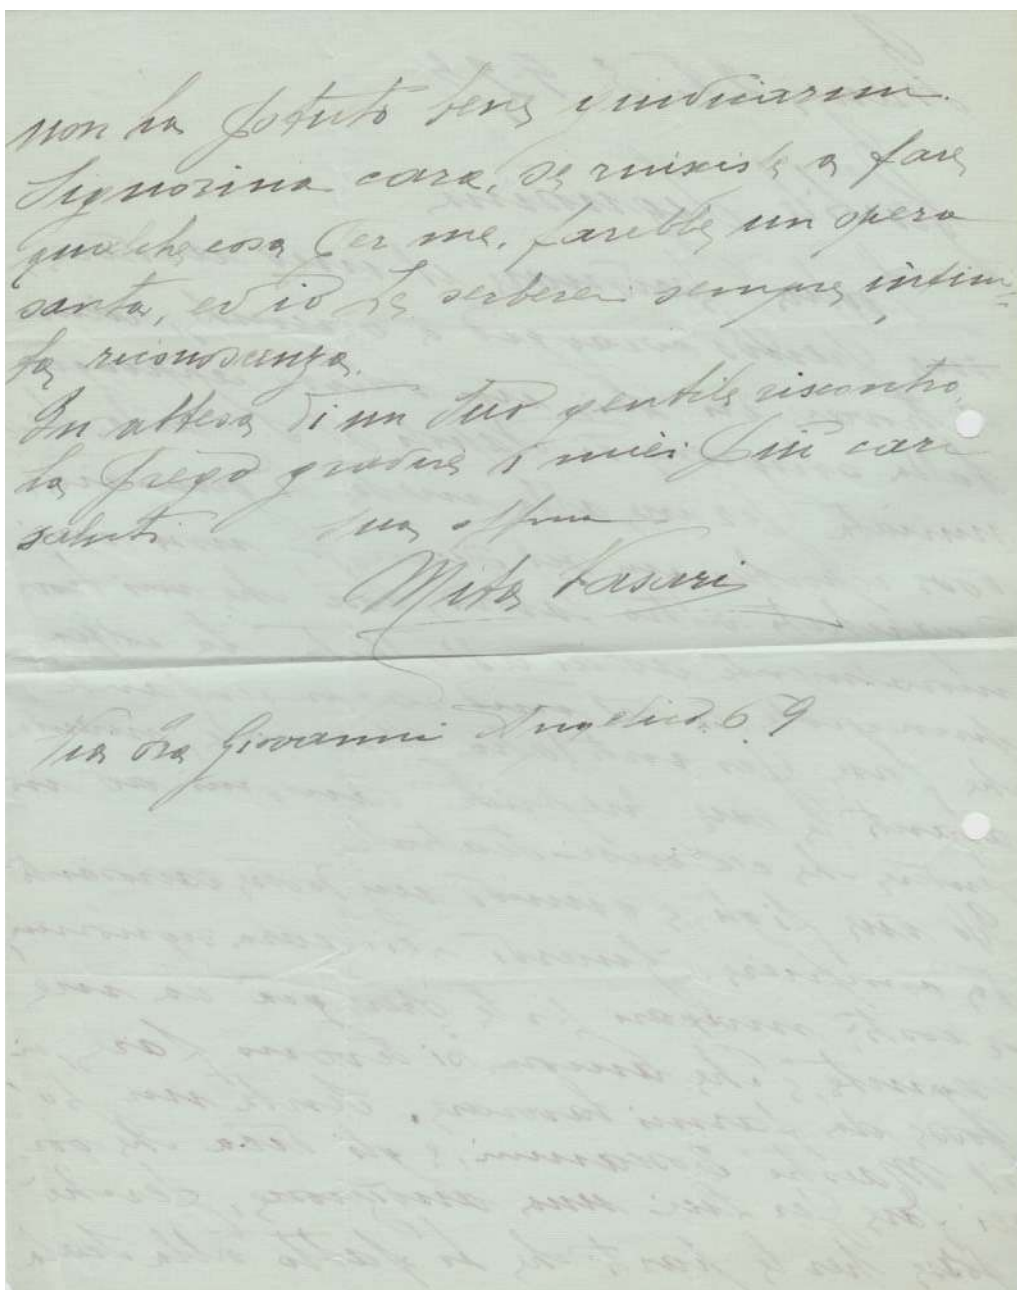 non ha potuto bene giudicarmi.
Signorina cara, se riuscisse a fare
qualche cosa per me, farebbe un opera
santa, ed io Le serberei sempre infini-
ta riconoscenza.
In attesa di un Suo gentile riscontro,
La prego gradire i miei più cari
saluti Sua aff.ma
Mita Vasari
Via Gra Giovanni Angelico. 69